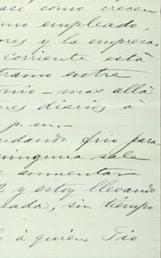 así como crecen
como empleado,
ores y la empresa.
corriente está
tramo entre
mio - mas allá
nes diarios á
p.m. -
dando frio para
ninguna sale
aumentar
y estoy llevando
eada, sin tiempo
á quien Tio